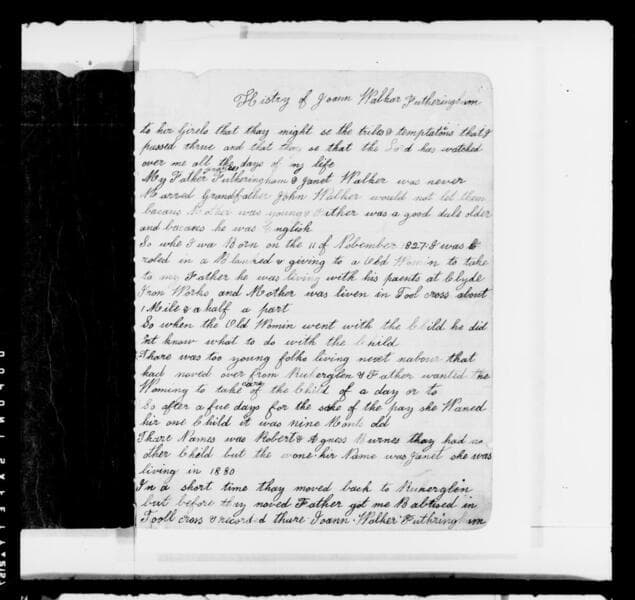 Histry of Joann Walkar Futheringham
to hir Girels that thay might se the tribes & temptatons that I
passed thrue and that thay se that the Lord has watched
over me all the days of my life
My Father Futheringham & Janet Walker was never
Marred Grandfather John Walker would not let them
becaus Mother was young & Father was a good dule older
and becaes he was English
So whe I wa Born on the 11 of November 1827 I was
roled in a & giving to a Old Women to take
to my Father he was living with his paents at Clyde
Iron Works and Mother was liven in Tool cross about
1 Mile & a half a part
So when the Old Womin went with the Child he did
not know what to do with the Child
Thare was too young folks living next nabour that
had moved over from Rukerglen & Father wanted the
Woming to take care of the Child of a day or to
So after a fue days for the sake of the pay she Waned
hir one Child it was nine Month old
Thare Names was Robert & Agness Burnes thay had no
other Child but the one hir Name was Janet she was
living in 1880
In a short time thay moved back to Rukerglen
but before thay moved Father got me Babtised in
Tooll cross & record-d thare Joann Walker Futhringham